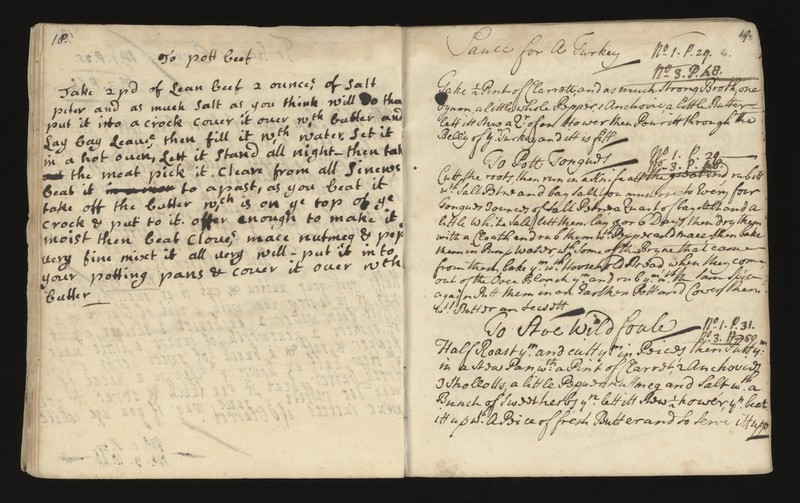 18.
To pott beef
Take 2 pd of Lean beef 2 ounces of Salt
peter and as much Salt as you think will do then
put it into a crock cover it over wth butter and
Lay bay Leaves then fill it wth water, Set it
in a hot oven, Lett it Stand all night then take
the meat pick it, Cleare from all Sinews
beat it to a past, as you beat it
take off the butter wch is on ye top of ye
Crock & put to it. often enough to make it
moist then beat Cloves mace nutmeg & pep
very fine mixt it all very well put it into
your potting pans & cover it over wth
butter
19.
Sauce for A Turkey No. 1. P. 29.
No. 3. P. 68.
Take ½ Pint of Clarrott, and as much Strong Broth, one
Onyon a little whole Pepper 1 Anchovie a little Butter
lett itt Stew a Qr. of an Hower then Pour itt through the
Belly of ye Turkey and itt is fitt
To Pott Tongues No. 1. P. 29
No. 3. P.
Cutt the roots, then run a Knife att the great end rub itt
wth Salt Petre and bay salt for
Tongues Ounces of Salt Petre a Quart of bay salt and a
little white Salt lett them lay 5 or 6 Days then dry them
with a Cloath and rub them wth Pepper and mace then bake
them in Pump Water wth Some of the Brine that came
from them, bake ym wth Household Bread when they come
out of the Oven Blanch ym and rub ym wth the Same Spice
again Putt them in an Earthen Pott and Cover them
wth Butter or Sewett
To Stove Wild foule No. 1. P. 31.
No. 3. P.
Half Roast ym and cutt ym in Peices then Putt ym
in a Stew Pan wth a Pint of Clarret 2 Anchovies
3 Shollotts, a little Pepper Nutmeg and Salt wth a
Bunch of Sweet herbs yn lett itt Stew ½ hower, yn beat
itt up wth A Peice of fresh Butter and so Serve itt upp